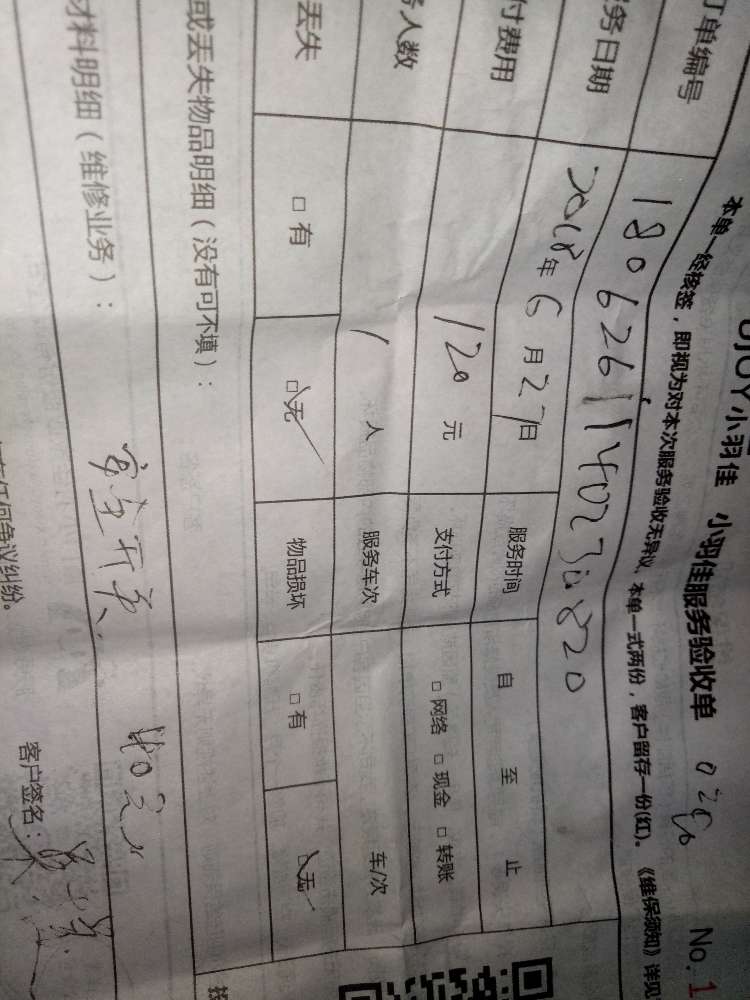 UJOY小羽佳 小羽佳服务验收单 No.1
本单一经接签，即视为对本次服务验收无异议，本单一式两份，客户留存一份(红)。《维保须知》详见
订单编号
服务日期 2018年6月27日 服务时间 自 至 止
付费用 120元 支付方式 □网络 □现金 □转账
务人数 1人 服务车次 车/次
丢失 □有 □无 物品损坏 □有 □无
或丢失物品明细（没有可不填）：
材料明细（维修业务）： 40元
客户签名：
任何争议纠纷。